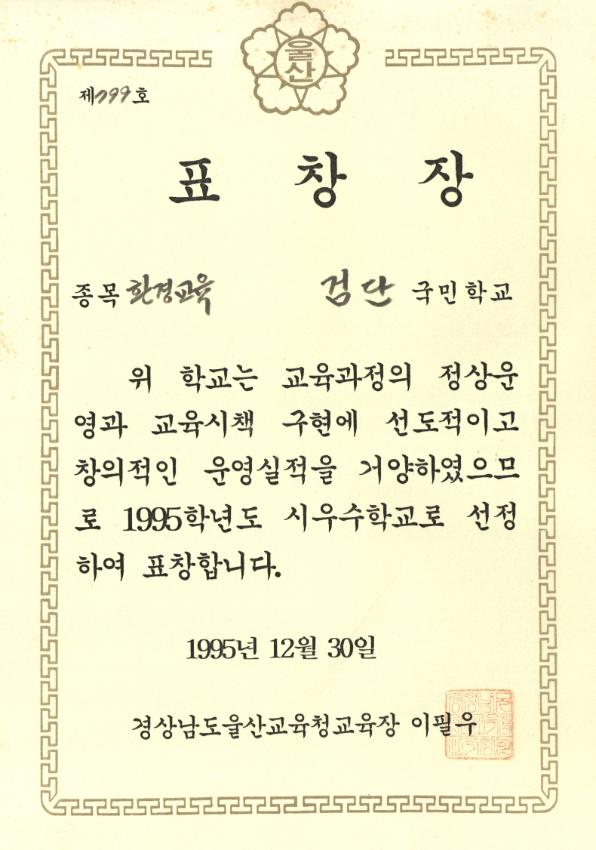 울산
제799호
표 창 장
종목 환경교육 검단 국민학교
위 학교는 교육과정의 정상운
영과 교육시책 구현에 선도적이고
창의적인 운영실적을 거양하였으므
로 1995학년도 시우수학교로 선정
하여 표창합니다.
1995년 12월 30일
경상남도울산교육청교육장 이필우